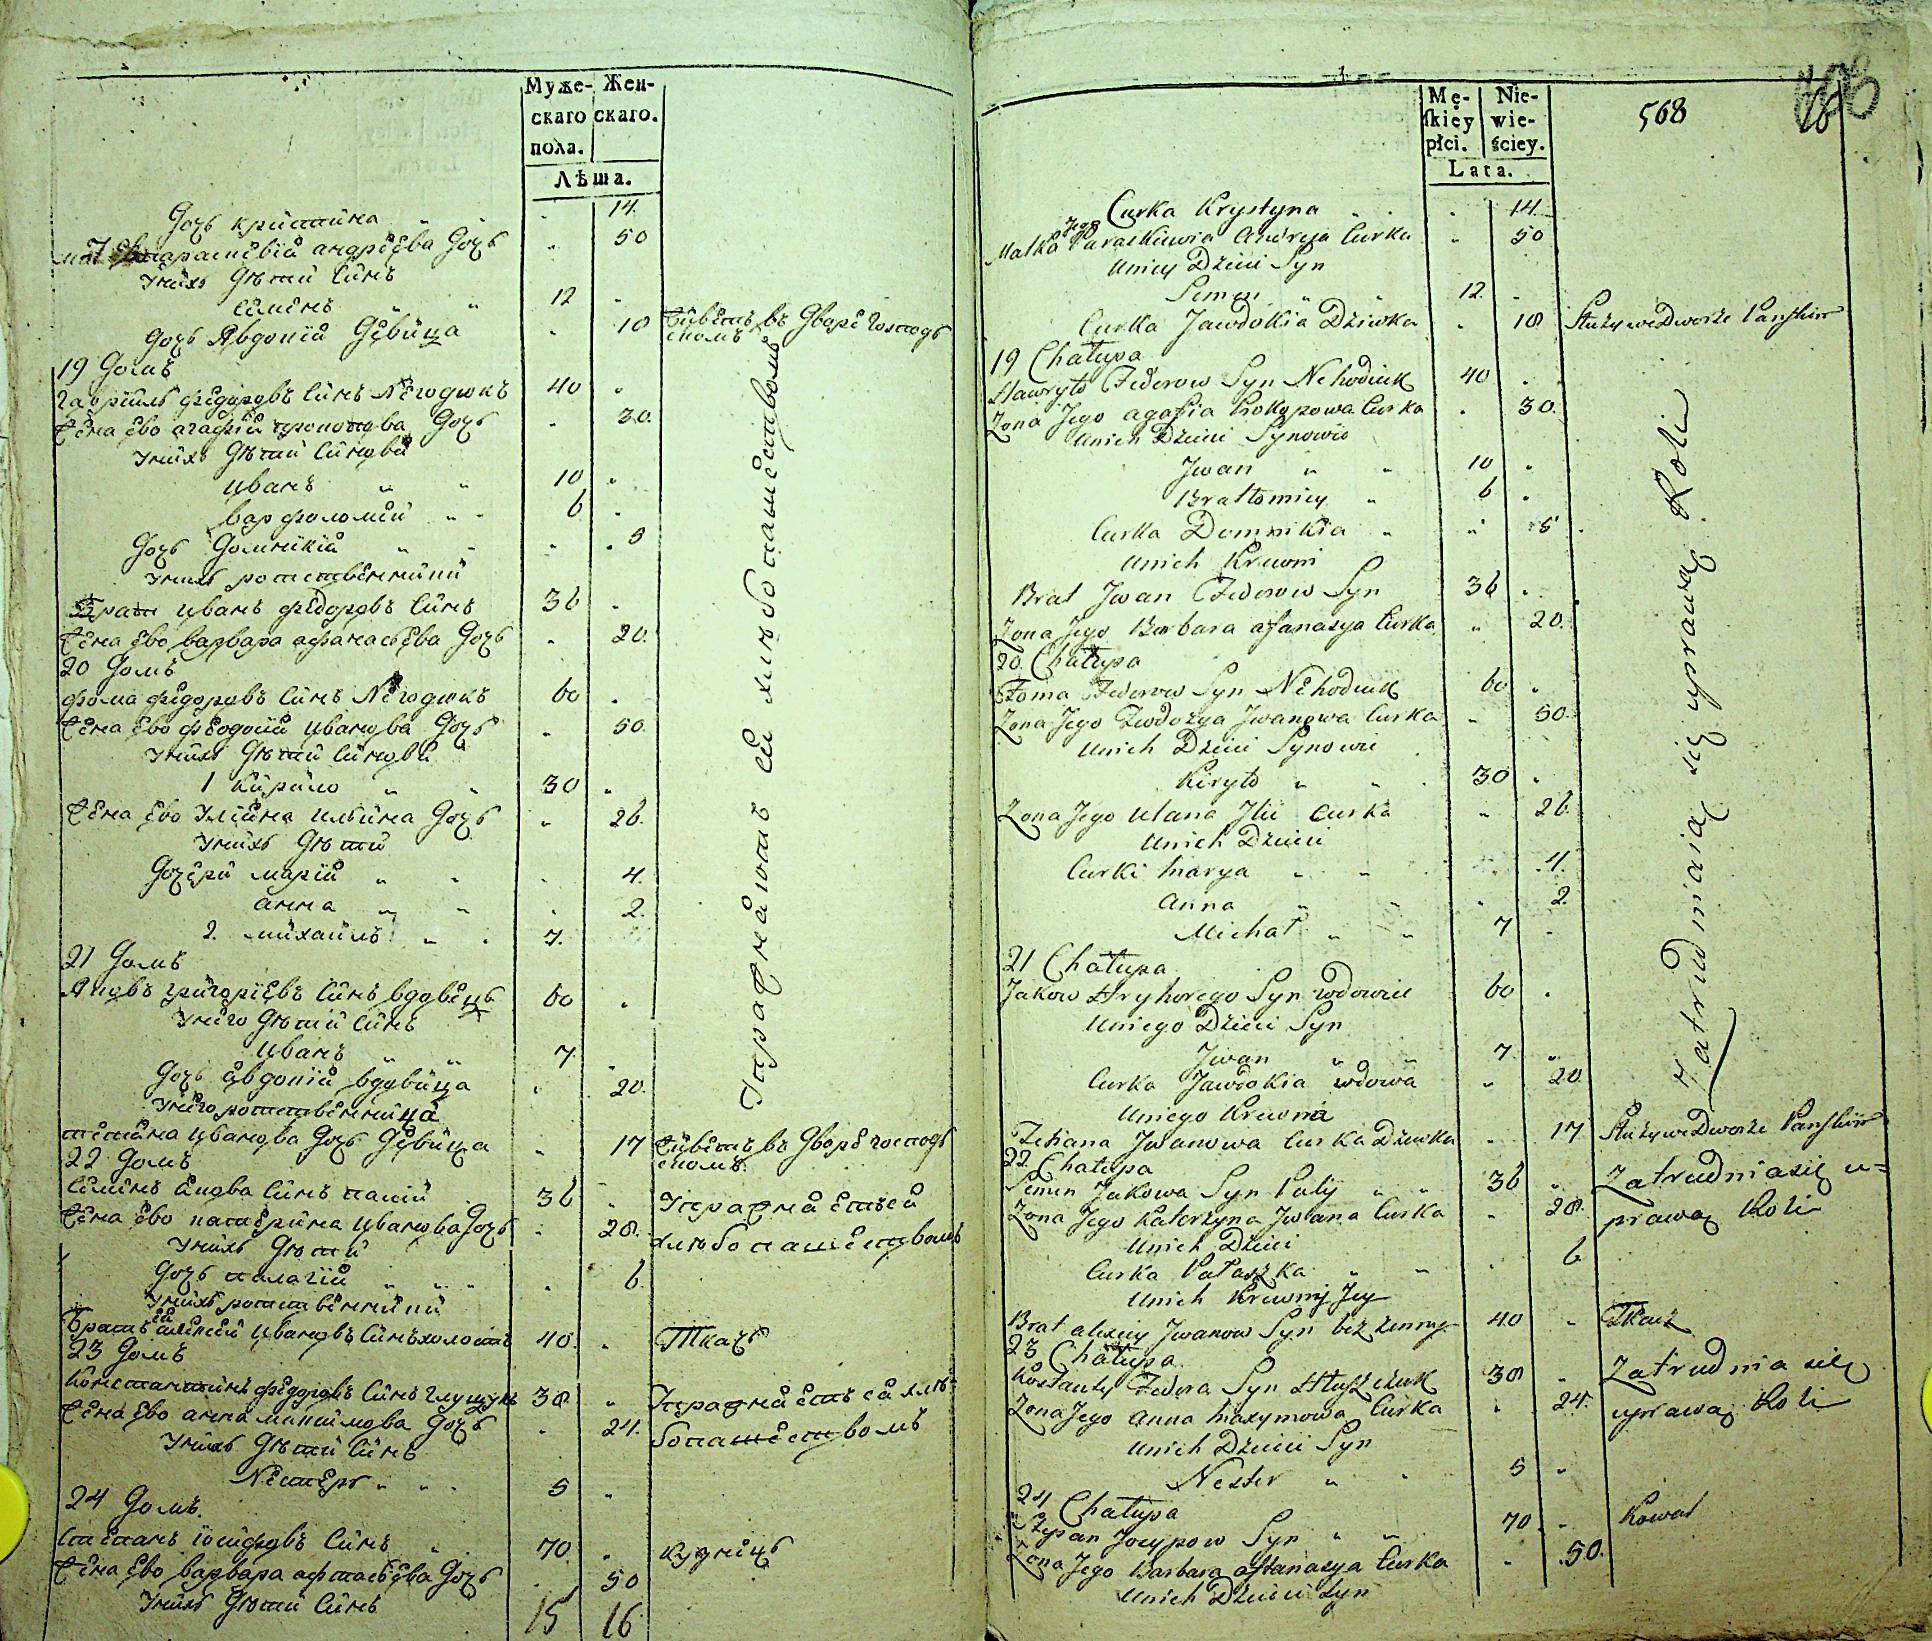 Муже- Жен-
скаго скаго.
пола.
Лѣта.
дочь кристина " " 14
мат Ево парасковіи андрѣева дочь " 50
унихъ дѣти синъ
Симѣнъ " " 12 "
дочь Явдокія дѣвица " 18 живетъ въ дворе господъ
скомъ
19 домъ
гаврило федоровъ синъ Негодюкъ 40 "
жена ево агафия прокопова дочь " 30.
унихъ дѣти синови
иванъ " " 10 "
варфоломий " " 6 "
дочь домникия " " " 5
унихъ родственники
Брат иванъ федоровъ синъ 36 "
жена ево варвара афанасьева дочь " 20.
20 домъ
фома федоровъ синъ Негодюкъ 60 "
жена ево феодосия иванова дочь " 50.
унихъ дѣти синови
1 Кирило " " 30 "
жена ево улияна ильина дочь " 26.
унихъ дѣти
дочери мария " " " 4.
анна " " " 2.
2. михаилъ " " 7.
21 домъ
Яковъ григориевъ синъ вдовецъ 60 "
унего дѣтии синъ
иванъ " " 7 "
дочь авдокия вдовица " 20.
унего родственница
тетяна иванова дочь дѣвица " 17 живетъ въ дворе господъ
скомъ
22 домъ
Симѣнъ якова синъ палий 36 " упражняется
жена ево катерина иванова дочь " 28. хлѣбопашествомъ
унихъ дѣти
дочь палагия " " " 6.
унихъ родственники
братъ ея алексей ивановъ синъ холостъ 40. " Ткачъ
23 домъ
константинъ федоровъ синъ глущукъ 38. " упражняется хлѣ-
жена ево анна максимова дочь " 24. бопашествомъ
унихъ дѣти синъ
Нестеръ " " " 5 "
24 домъ.
степанъ иосифовъ синъ " 70 " кузнецъ
жена ево варвара афтасьева дочь " 50
унихъ дѣти синъ
15 16
упражняются хлѣбопашествомъ
Mę- Nie-
skiey wie-
płci. ściey.
Lata.
568
16
Curka Krystyna " " " 14
Matka Jego Paraskiewia Andreja Curka " 50
Unich Dzieci Syn
Semen " " 12. "
Curka Jawdokia Dziwka " 18 Służy we Dworze Pańskim
19 Chałupa
Hawryło Fedorow Syn Nehodiuk 40 "
Żona Jego agafia Prokopowa Curka " 30.
Unich Dzieci Synowie
Jwan " " 10 "
Bratłomiey " 6 "
Curka Domnikia " " 5
Unich Krewni
Brat Jwan Fedorow Syn 36 "
Żona Jego Barbara afanasya Curka " 20.
20 Chałupa
Foma Fedorow Syn Nehodiuk 60 "
Żona Jego Fwdozya Jwanowa Curka " 50.
Unich Dzieci Synowie
Kiryło " " 30 "
Żona Jego Ulana Jlii Curka " 26.
Unich Dzieci
Curki Marya " " " 4.
Anna " " " 2.
Michał " " 7 "
21 Chałupa
Jakow Hryhorego Syn wdowiec 60 "
Uniego Dzieci Syn
Jwan " " 7 "
Curka Jawdokia wdowa " 20
Uniego Krewna
Tetiana Jwanowa Curka Dziwka " 17 Służy we Dworze Pańskim
22 Chałupa
Semen Jakowa Syn Palij " " 36 " Zatrudnia się u=
Żona Jego Katerzyna Jwana Curka " 28. prawą Roli
Unich Dzieci
Curka Pałaszka " " " 6
Unich Krewny Jey
Brat alexiey Jwanow Syn bezżenny 40 " Tkacz
23 Chałupa
Kostanty Fedora Syn Hłuszczuk 38 " Zatrudnia się
Żona Jego Anna Maxymowa Curka " 24. uprawą Roli
Unich Dzieci Syn
Nester " " 5 "
24 Chałupa
Stepan Josypow Syn " " 70 " Kowal
Żona Jego Barbara aftanasya Curka " 50.
Unich Dzieci Syn
Zatrudniaią się uprawą Roli